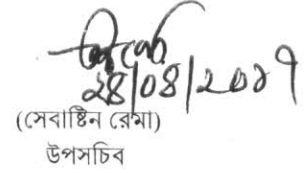 ২৪/০৪/২০১৭
(সেবাষ্টিন রেমা)
উপসচিব